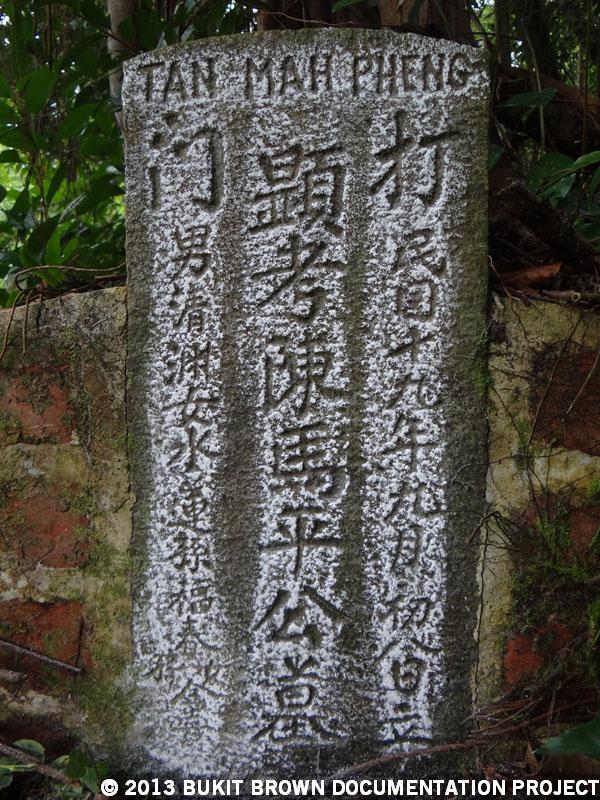 TAN MAH PHENG
打
门
民国十九年九月初八日立
顯考陳馬平公墓
男清渊女水蓮孫福春
© 2013 BUKIT BROWN DOCUMENTATION PROJECT